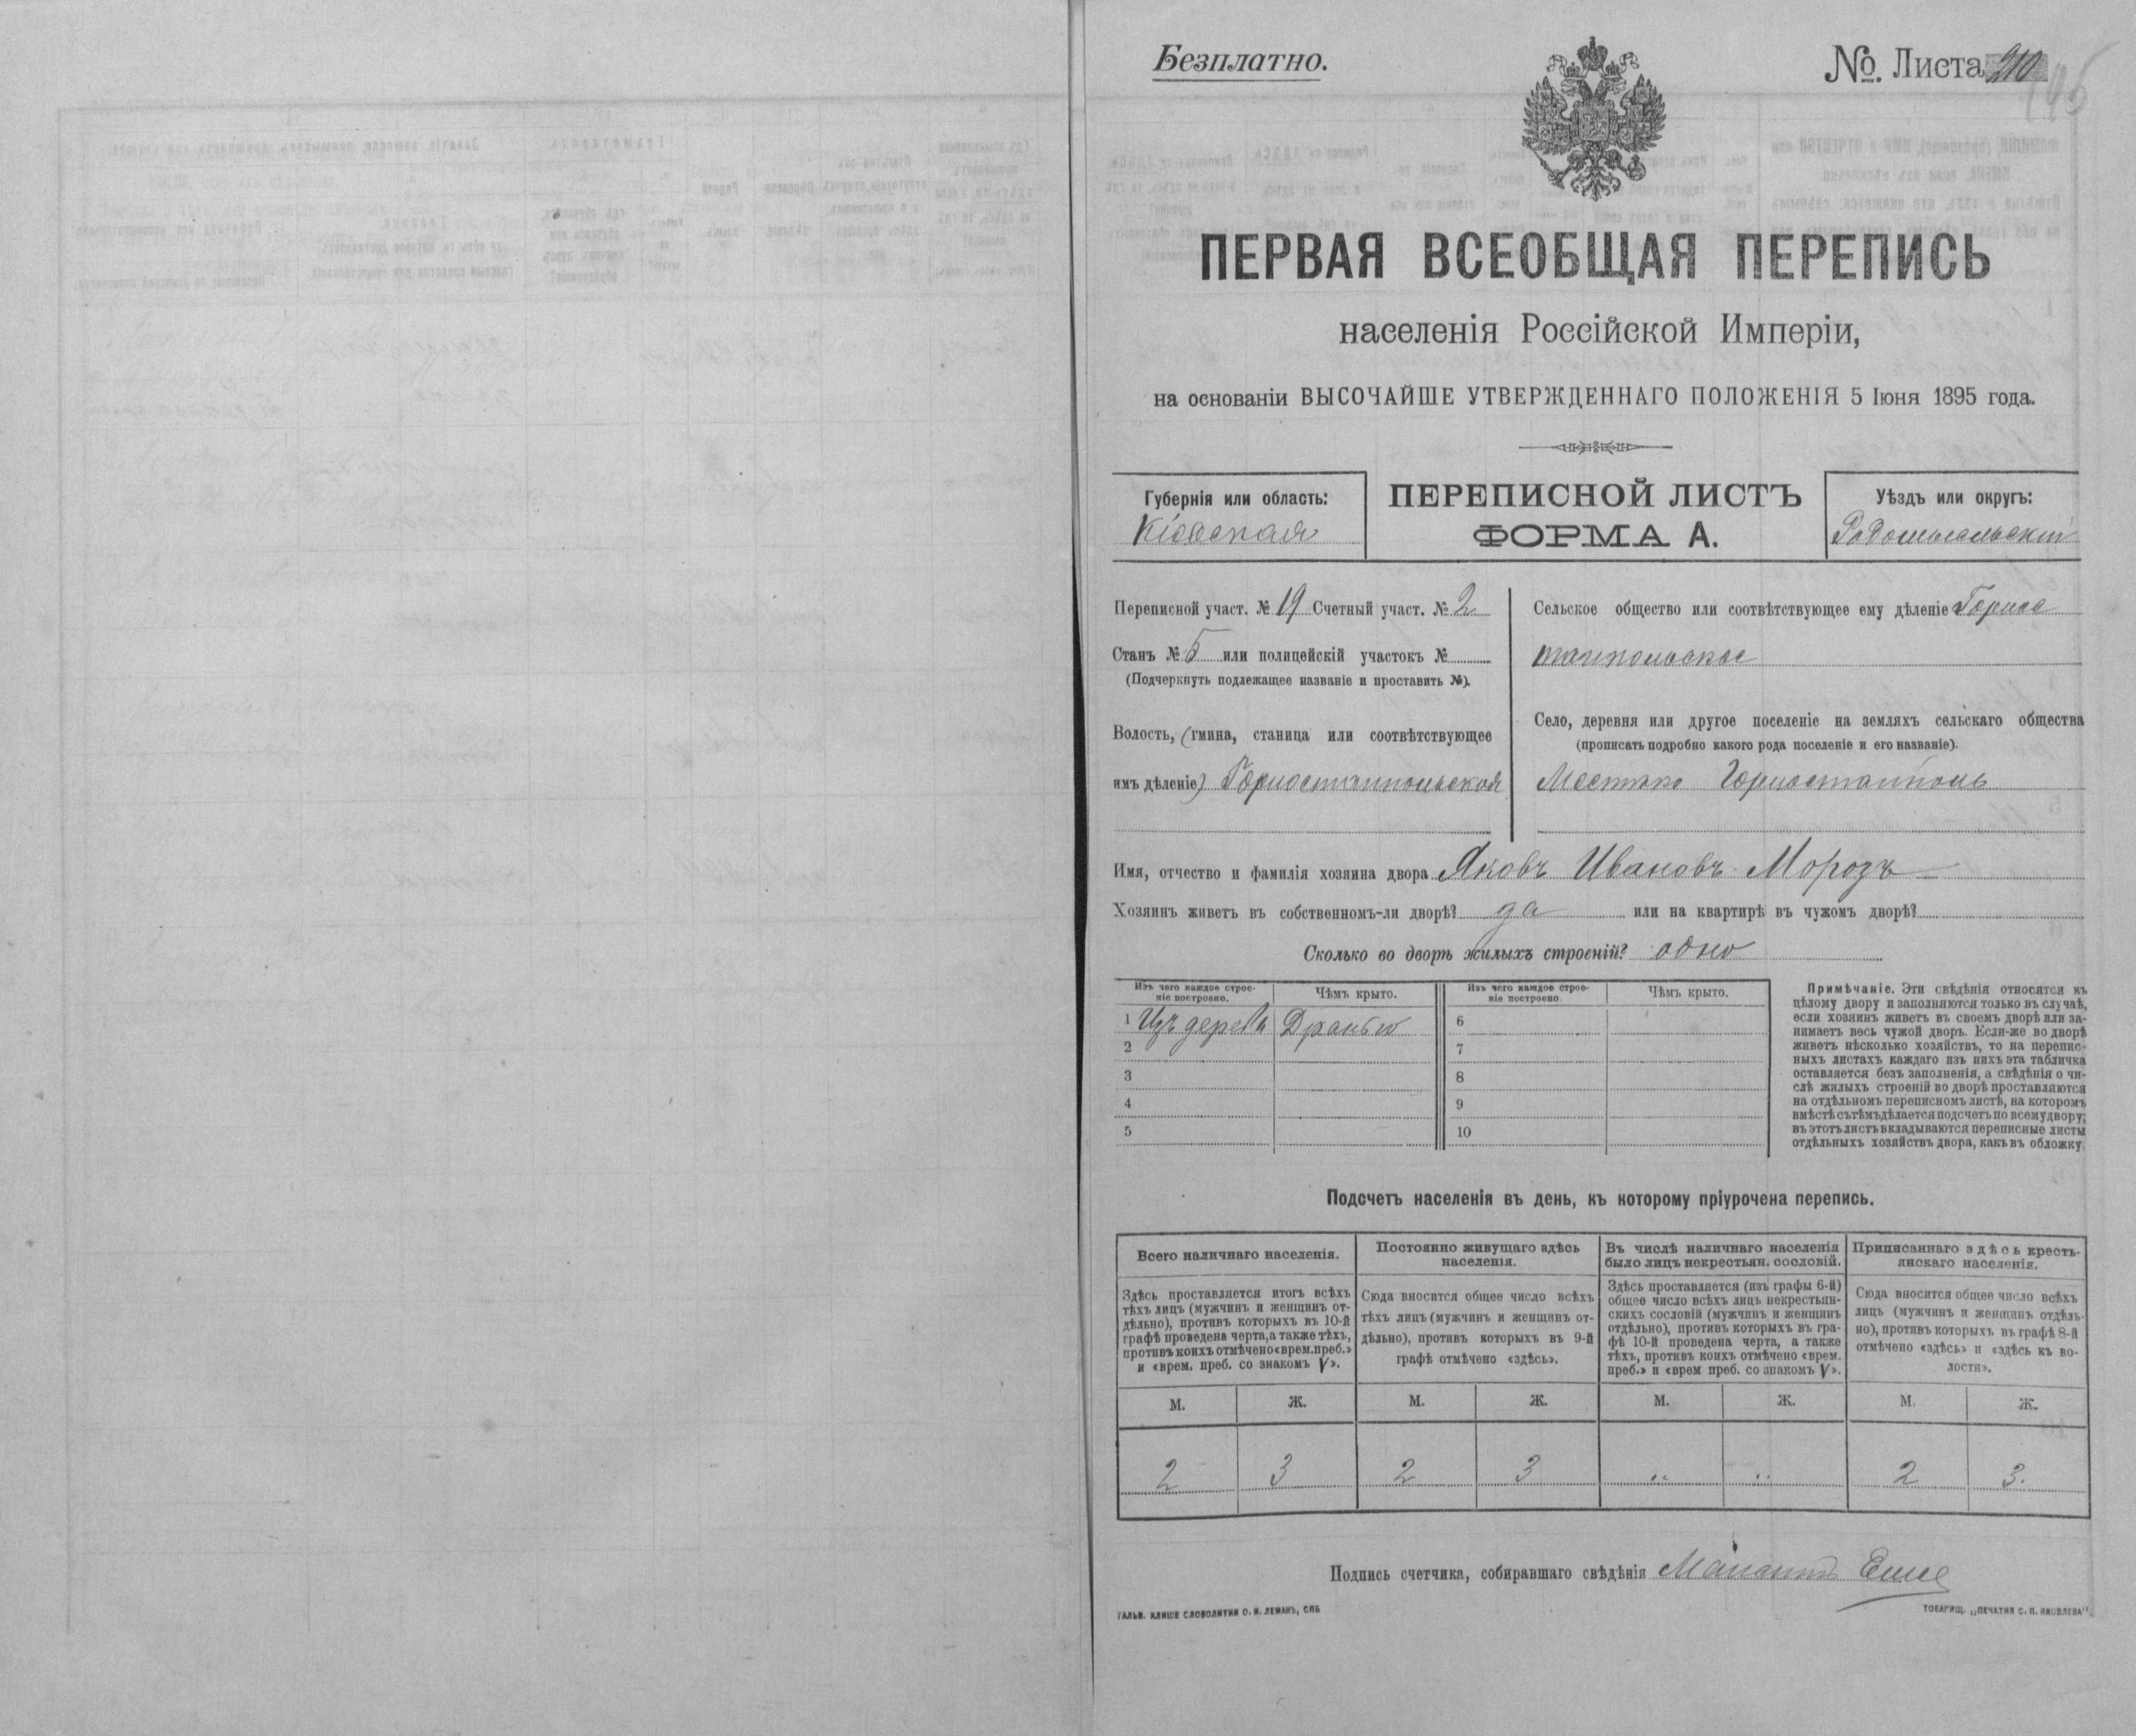 Безплатно.
№. Листа 210
ПЕРВАЯ ВСЕОБЩАЯ ПЕРЕПИСЬ
населенія Россійской Имперіи,
на основаніи ВЫСОЧАЙШЕ УТВЕРЖДЕННАГО ПОЛОЖЕНІЯ 5 Іюня 1895 года.
Губернія или область:
Кіевская
ПЕРЕПИСНОЙ ЛИСТЪ
ФОРМА А.
Уѣздъ или округъ:
Радомысльскій
Переписной участ. № 19 Счетный участ. № 2
Станъ № 5 или полицейскій участокъ №
(Подчеркнуть подлежащее названіе и проставить №).
Волость, (гмина, станица или соотвѣтствующее
имъ дѣленіе) Горностайпольская
Сельское общество или соотвѣтствующее ему дѣленіе Горнос
тайпольское
Село, деревня или другое поселеніе на земляхъ сельскаго общества
(прописать подробно какого рода поселеніе и его названіе).
Местечко Горностайполь
Имя, отчество и фамилія хозяина двора Яковъ Ивановъ Морозъ
Хозяинъ живетъ въ собственномъ-ли дворѣ? да или на квартирѣ въ чужомъ дворѣ?
Сколько во дворѣ жилыхъ строеній? одно
Изъ чего каждое строе-
ніе построено.
Чѣмъ крыто.
Изъ чего каждое строе-
ніе построено.
Чѣмъ крыто.
1 Изъ дерева Дранью 6
2 7
3 8
4 9
5 10
Примѣчаніе. Эти свѣдѣнія относятся къ
цѣлому двору и заполняются только въ случаѣ,
если хозяинъ живетъ въ своемъ дворѣ или за-
нимаетъ весь чужой дворъ. Если-же во дворѣ
живетъ нѣсколько хозяйствъ, то на перепис-
ныхъ листахъ каждаго изъ нихъ эта табличка
оставляется безъ заполненія, а свѣдѣнія о чи-
слѣ жилыхъ строеній во дворѣ проставляются
на отдѣльномъ переписномъ листѣ, на которомъ
вмѣстѣ съ тѣмъ дѣлается подсчетъ по всему двору;
въ этотъ листъ вкладываются переписные листы
отдѣльныхъ хозяйствъ двора, какъ въ обложку.
Подсчетъ населенія въ день, къ которому пріурочена перепись.
Всего наличнаго населенія.
Здѣсь проставляется итогъ всѣхъ
тѣхъ лицъ (мужчинъ и женщинъ от-
дѣльно), противъ которыхъ въ 10-й
графѣ проведена черта, а также тѣхъ,
противъ коихъ отмѣчено «врем. преб.»
и «врем. преб. со знакомъ V».
Постоянно живущаго здѣсь
населенія.
Сюда вносится общее число всѣхъ
тѣхъ лицъ (мужчинъ и женщинъ от-
дѣльно), противъ которыхъ въ 9-й
графѣ отмѣчено «здѣсь».
Въ числѣ наличнаго населенія
было лицъ некрестьян. сословій.
Здѣсь проставляется (изъ графы 6-й)
общее число всѣхъ лицъ некрестьян-
скихъ сословій (мужчинъ и женщинъ
отдѣльно), противъ которыхъ въ гра-
фѣ 10-й проведена черта, а также
тѣхъ, противъ коихъ отмѣчено «врем.
преб.» и «врем преб. со знакомъ V».
Приписаннаго здѣсь кресть-
янскаго населенія.
Сюда вносится общее число всѣхъ
лицъ (мужчинъ и женщинъ отдѣль-
но), противъ которыхъ въ графѣ 8-й
отмѣчено «здѣсь» и «здѣсь къ во-
лости».
М. Ж. М. Ж. М. Ж. М. Ж.
2 3 2 3 „ „ 2 3.
Подпись счетчика, собиравшаго свѣдѣнія
ГАЛЬВ. КЛИШЕ СЛОВОЛИТНИ О. И. ЛЕМАНЪ, СПБ
ТОВАРИЩ. „ПЕЧАТНЯ С. П. ЯКОВЛЕВА".